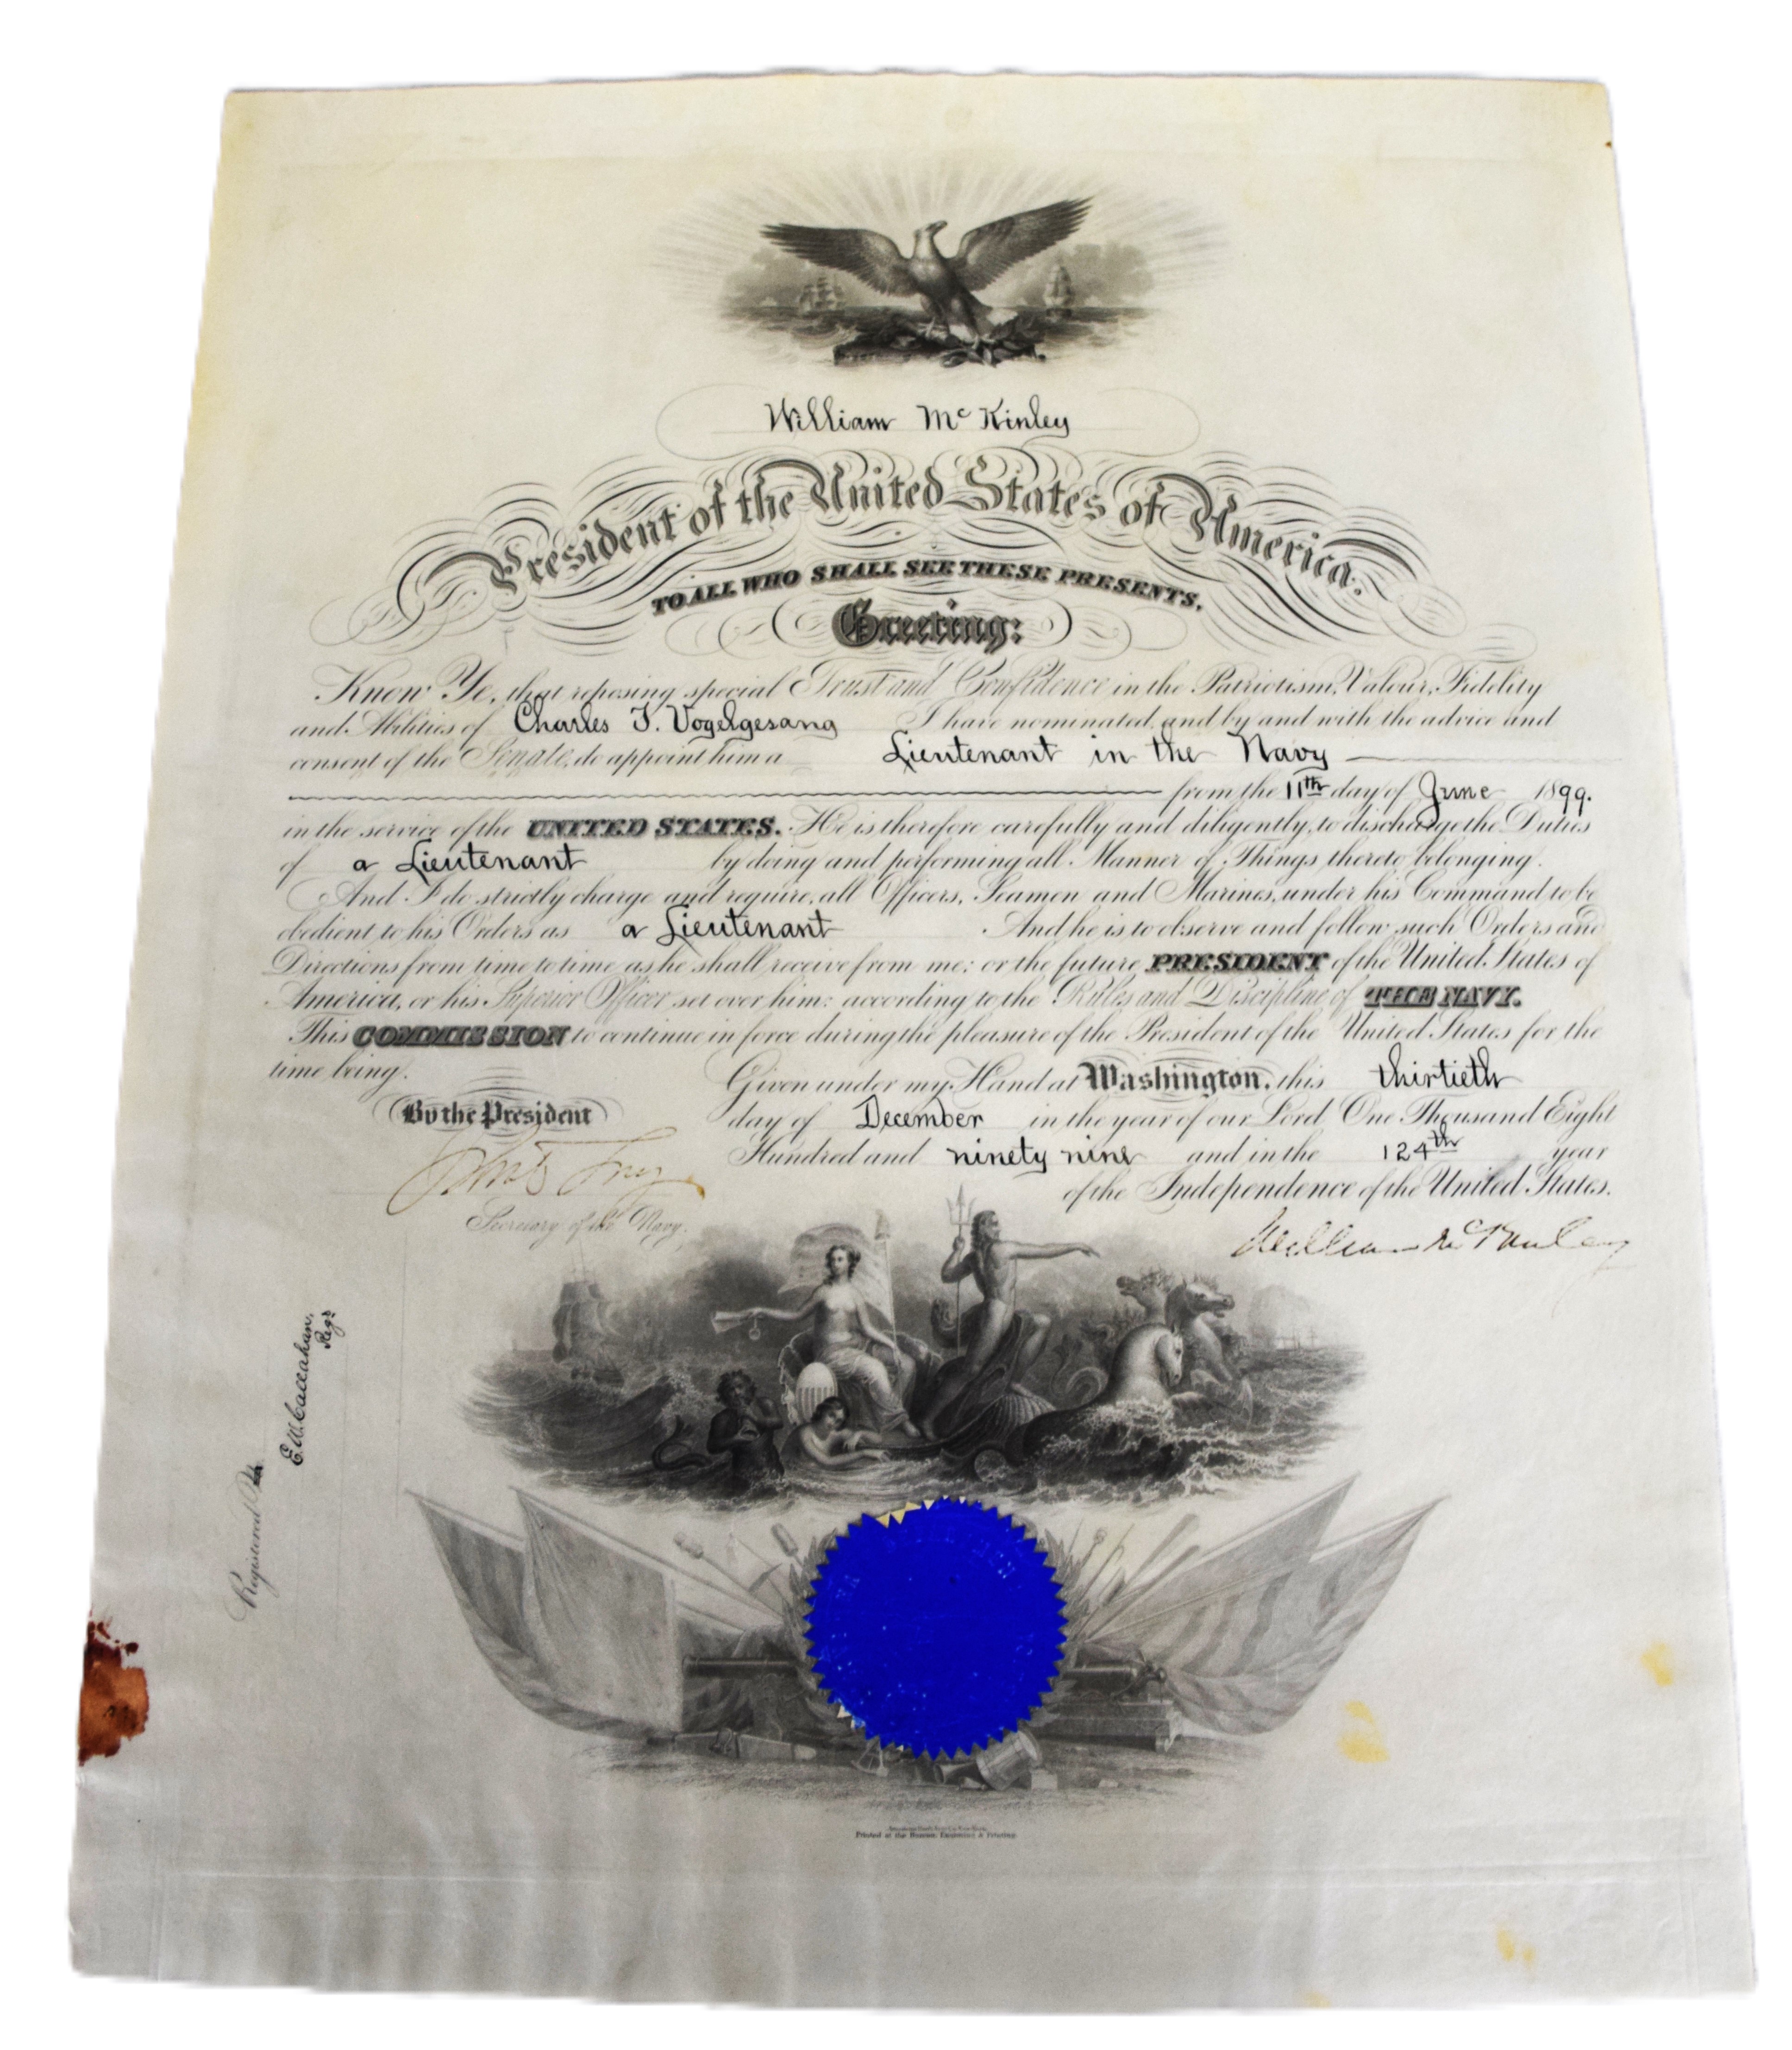 William McKinley
President of the United States of America.
TO ALL WHO SHALL SEE THESE PRESENTS,
Greeting:
Know Ye, that reposing special Trust and Confidence in the Patriotism, Valour, Fidelity
and Abilities of Charles T. Vogelgesang I have nominated, and by and with the advice and
consent of the Senate, do appoint him a Lieutenant in the Navy
from the 11th day of June 1899.
in the service of the UNITED STATES. He is therefore carefully and diligently, to discharge the Duties
of a Lieutenant by doing and performing all Manner of Things thereto belonging.
And I do strictly charge and require, all Officers, Seamen and Marines, under his Command to be
obedient to his Orders as a Lieutenant And he is to observe and follow such Orders and
Directions from time to time as he shall receive from me: or the future PRESIDENT of the United States of
America, or his Superior Officer set over him: according to the Rules and Discipline of THE NAVY.
This COMMISSION to continue in force during the pleasure of the President of the United States for the
time being.
Given under my Hand at Washington, this thirtieth
day of December in the year of our Lord, One Thousand Eight
Hundred and ninety nine and in the 124th year
of the Independence of the United States.
By the President
John D Long
Secretary of the Navy.
William McKinley
Registered
E.W. Callahan,
Regr
Printed at the Bureau, Engraving & Printing